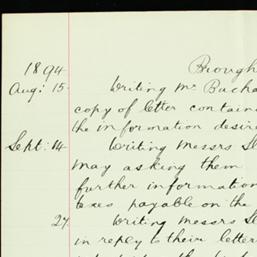 1894 Brough
Aug: 15 Writing Mr Bucha
copy of letter contain
the information desire
Sept: 14 Writing Messrs
may asking them
further information
taxes payable on the
27 Writing Messrs
in reply to their letter